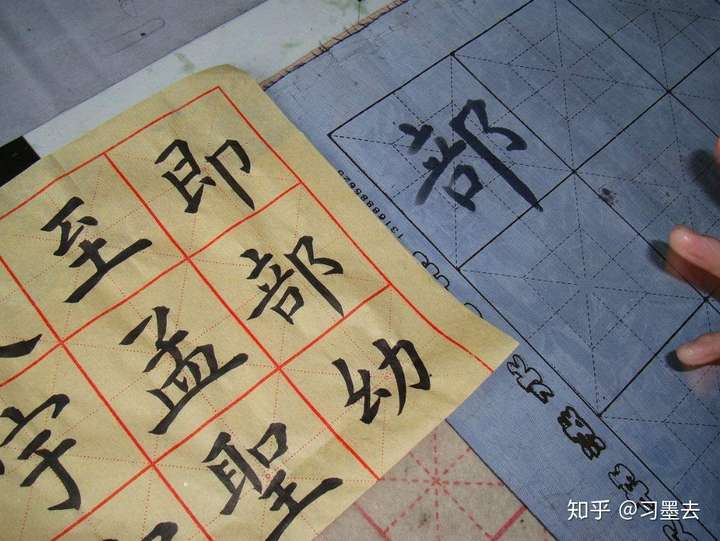 即部幼
至孟聖
字
部
知乎 @习墨去